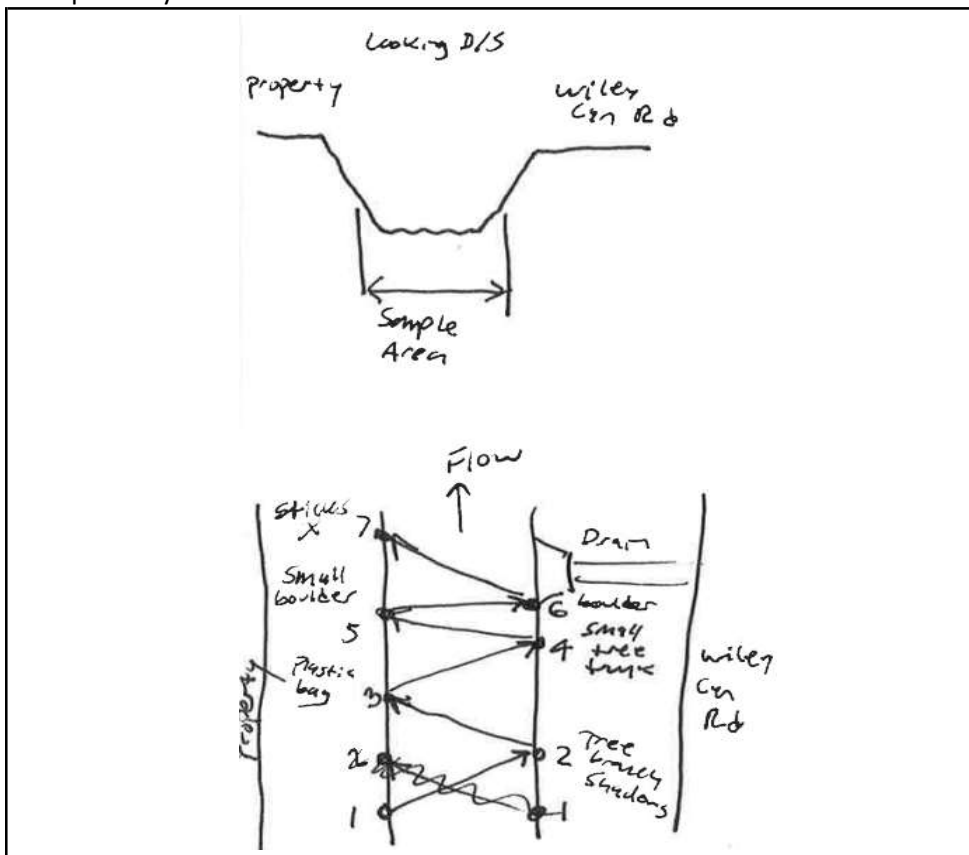 Looking D/S
property
Wiley
Cyn Rd
Sample
Area
Flow
Sticks
x
7
Drain
Small
boulder
6
boulder
5
4
Small
tree
trunk
Plastic
bag
3
Property
Wiley
Cyn
Rd
2
Tree
branch
Shadows
1